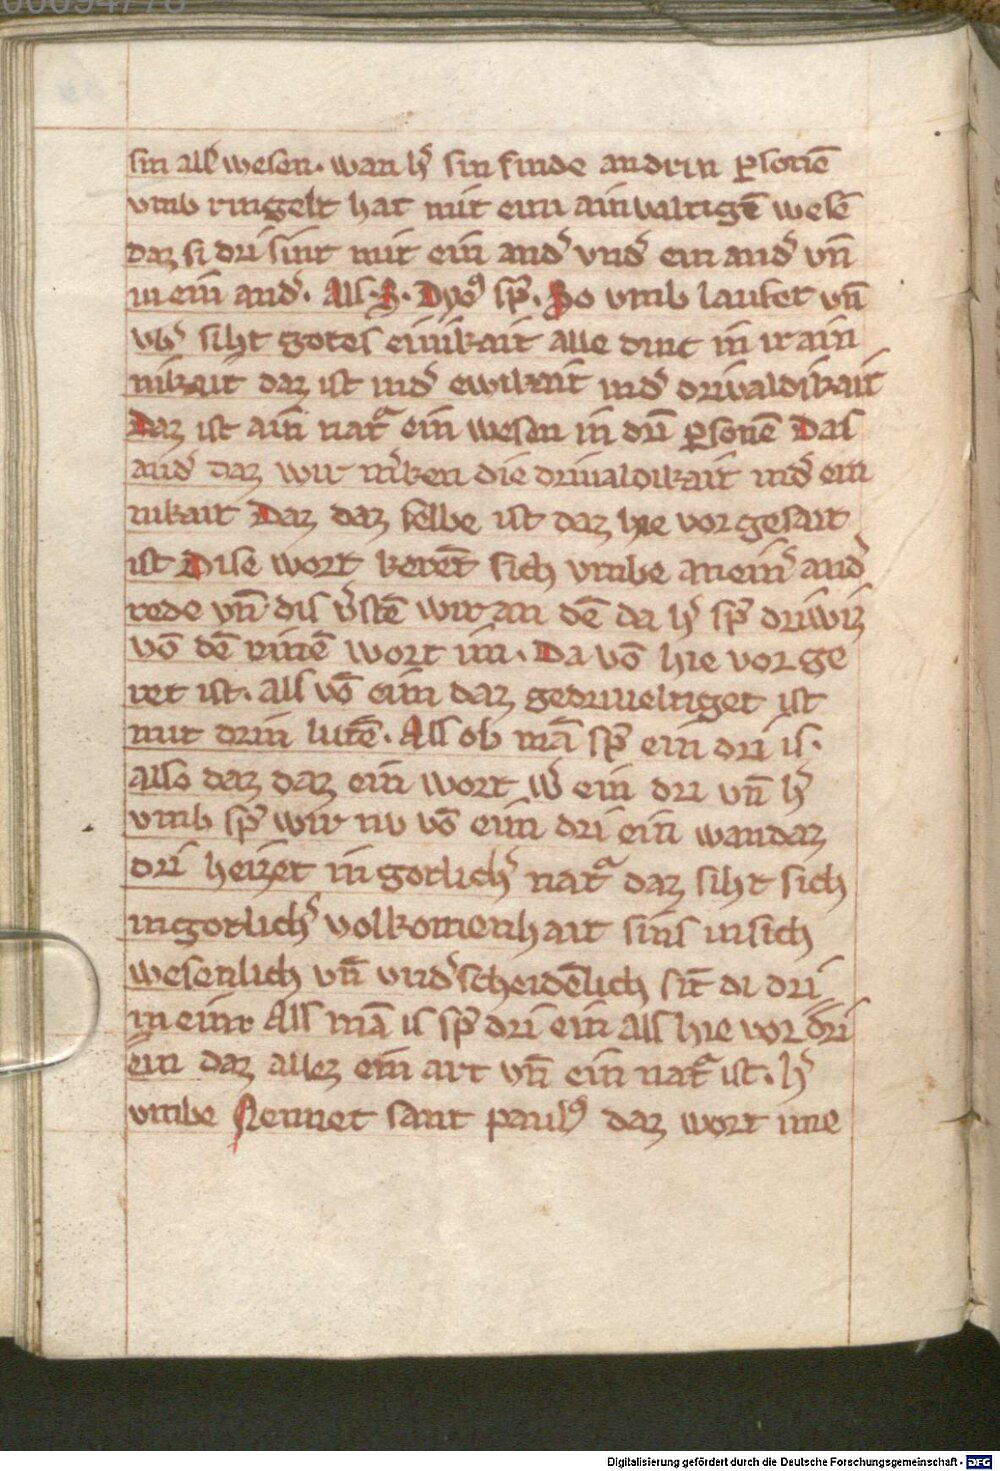 sin all wesen. wan h͛ sin kinde an drin ꝑsonē
vmb ringelt hat mit eim ainvaltigē wesē
daz si dri sint mit ein and͛ vnd͛ ein and͛ vn̄
in ein and͛. Als. S. Dyoꝰ sp͛. So vmb laufet vn̄
vb͛ siht gotes einikait alle dinc in ir ain
nikait daz ist in d͛ ewikait in d͛ drivaldikait
Daz ist ain nat͛ ein wesen in dri ꝑsonē Das
and͛ daz wir m͛ken die drivaldikait in d͛ ein
nikait Daz daz selbe ist daz hie vor gesait
ist Dise wort kerēt sich vmbe an ein͛ and͛
rede vn̄ dis v͛stē wir an dē da h͛ sp͛ driwiz
vō dē einē wort im. Da vō hie vor ge
ret ist. als vō eim daz gedriveltiget ist
mit drin lutē. Als ob mā sp͛ ein dri is.
also daz daz ein wort w͛ ein dri vn̄ h͛
vmb sp͛ wir nv vō eim dri ein wan daz
dri heizet in gotlich͛ nat͛ daz siht sich
in gotlich͛ volkomenhait sins in sich
wesenlich vn̄ vnd͛scheidēlich sīt di dri
in eim Als mā is sp͛ dri ein als hie vor dri
ein daz allez ein art vn̄ ein nat͛ ist. h͛
vmbe Nennet sant paulꝰ daz wort ime
Digitalisierung gefördert durch die Deutsche Forschungsgemeinschaft - DFG